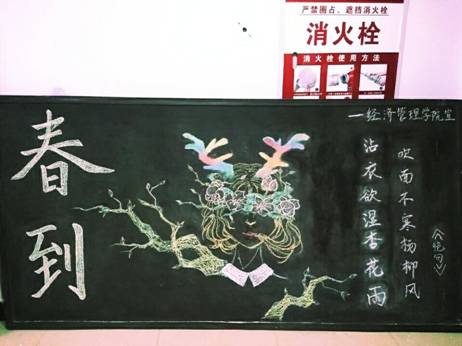 严禁圈占、遮挡消火栓
消火栓
消火栓使用方法
春到
一经济管理学院宣
沾衣欲湿杏花雨
吹面不寒杨柳风
《绝句》